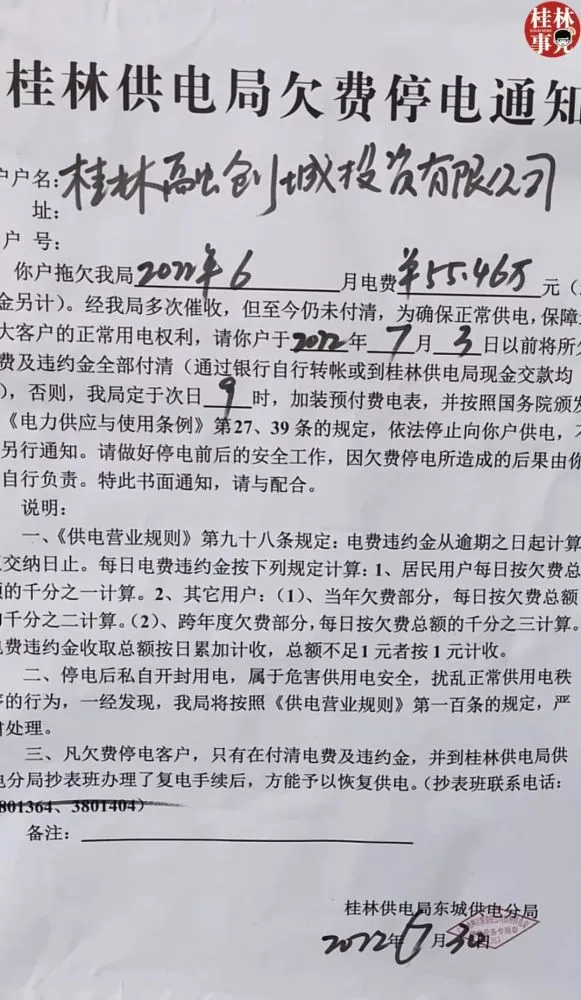 桂林
事兒
桂林供电局欠费停电通知
户户名:桂林高铁创城投资有限公司
址:
户 号:
你户拖欠我局2022年6月电费¥55.46万元(
金另计)。经我局多次催收,但至今仍未付清,为确保正常供电,保障
大客户的正常用电权利,请你户于2022年7月3日以前将所
费及违约金全部付清(通过银行自行转帐或到桂林供电局现金交款均
),否则,我局定于次日9时,加装预付费电表,并按照国务院颁发
《电力供应与使用条例》第27、39条的规定,依法停止向你户供电,
另行通知。请做好停电前后的安全工作,因欠费停电所造成的后果由你
自行负责。特此书面通知,请与配合。
说明:
一、《供电营业规则》第九十八条规定:电费违约金从逾期之日起计算
交纳日止。每日电费违约金按下列规定计算:1、居民用户每日按欠费总
的千分之一计算。2、其它用户:(1)、当年欠费部分,每日按欠费总额
千分之二计算。(2)、跨年度欠费部分,每日按欠费总额的千分之三计算。
费违约金收取总额按日累加计收,总额不足1元者按1元计收。
二、停电后私自开封用电,属于危害供用电安全,扰乱正常供用电秩
的行为,一经发现,我局将按照《供电营业规则》第一百条的规定,严
处理。
三、凡欠费停电客户,只有在付清电费及违约金,并到桂林供电局供
电分局抄表班办理了复电手续后,方能予以恢复供电。(抄表班联系电话:
801364、3801404)
备注:
桂林供电局东城供电分局
2022年6月30日